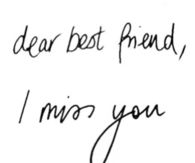 dear best friend,
I miss you